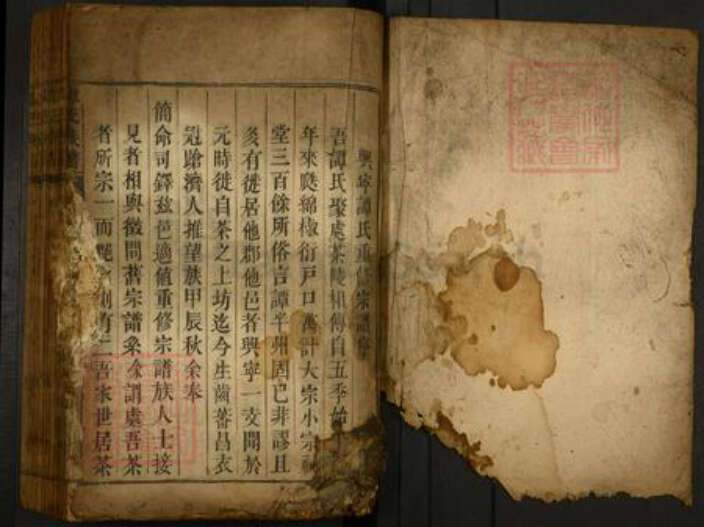 興寧譚氏重修宗譜序
吾譚氏聚處茶陵相傳自五季始
年來瓞綿椒衍戶口萬計大宗小宗祠
堂三百餘所俗言譚半州固已非謬且
多有徙居他郡他邑者興寧一支聞於
元時徙自茶之上坊迄今生齒蕃昌衣
冠蹌濟人推望族甲辰秋余奉
簡命司鐸茲邑適值重修宗譜族人士接
見者相與徵問舊宗譜系余謂處吾茶
者所宗一而 有二吾家世居茶